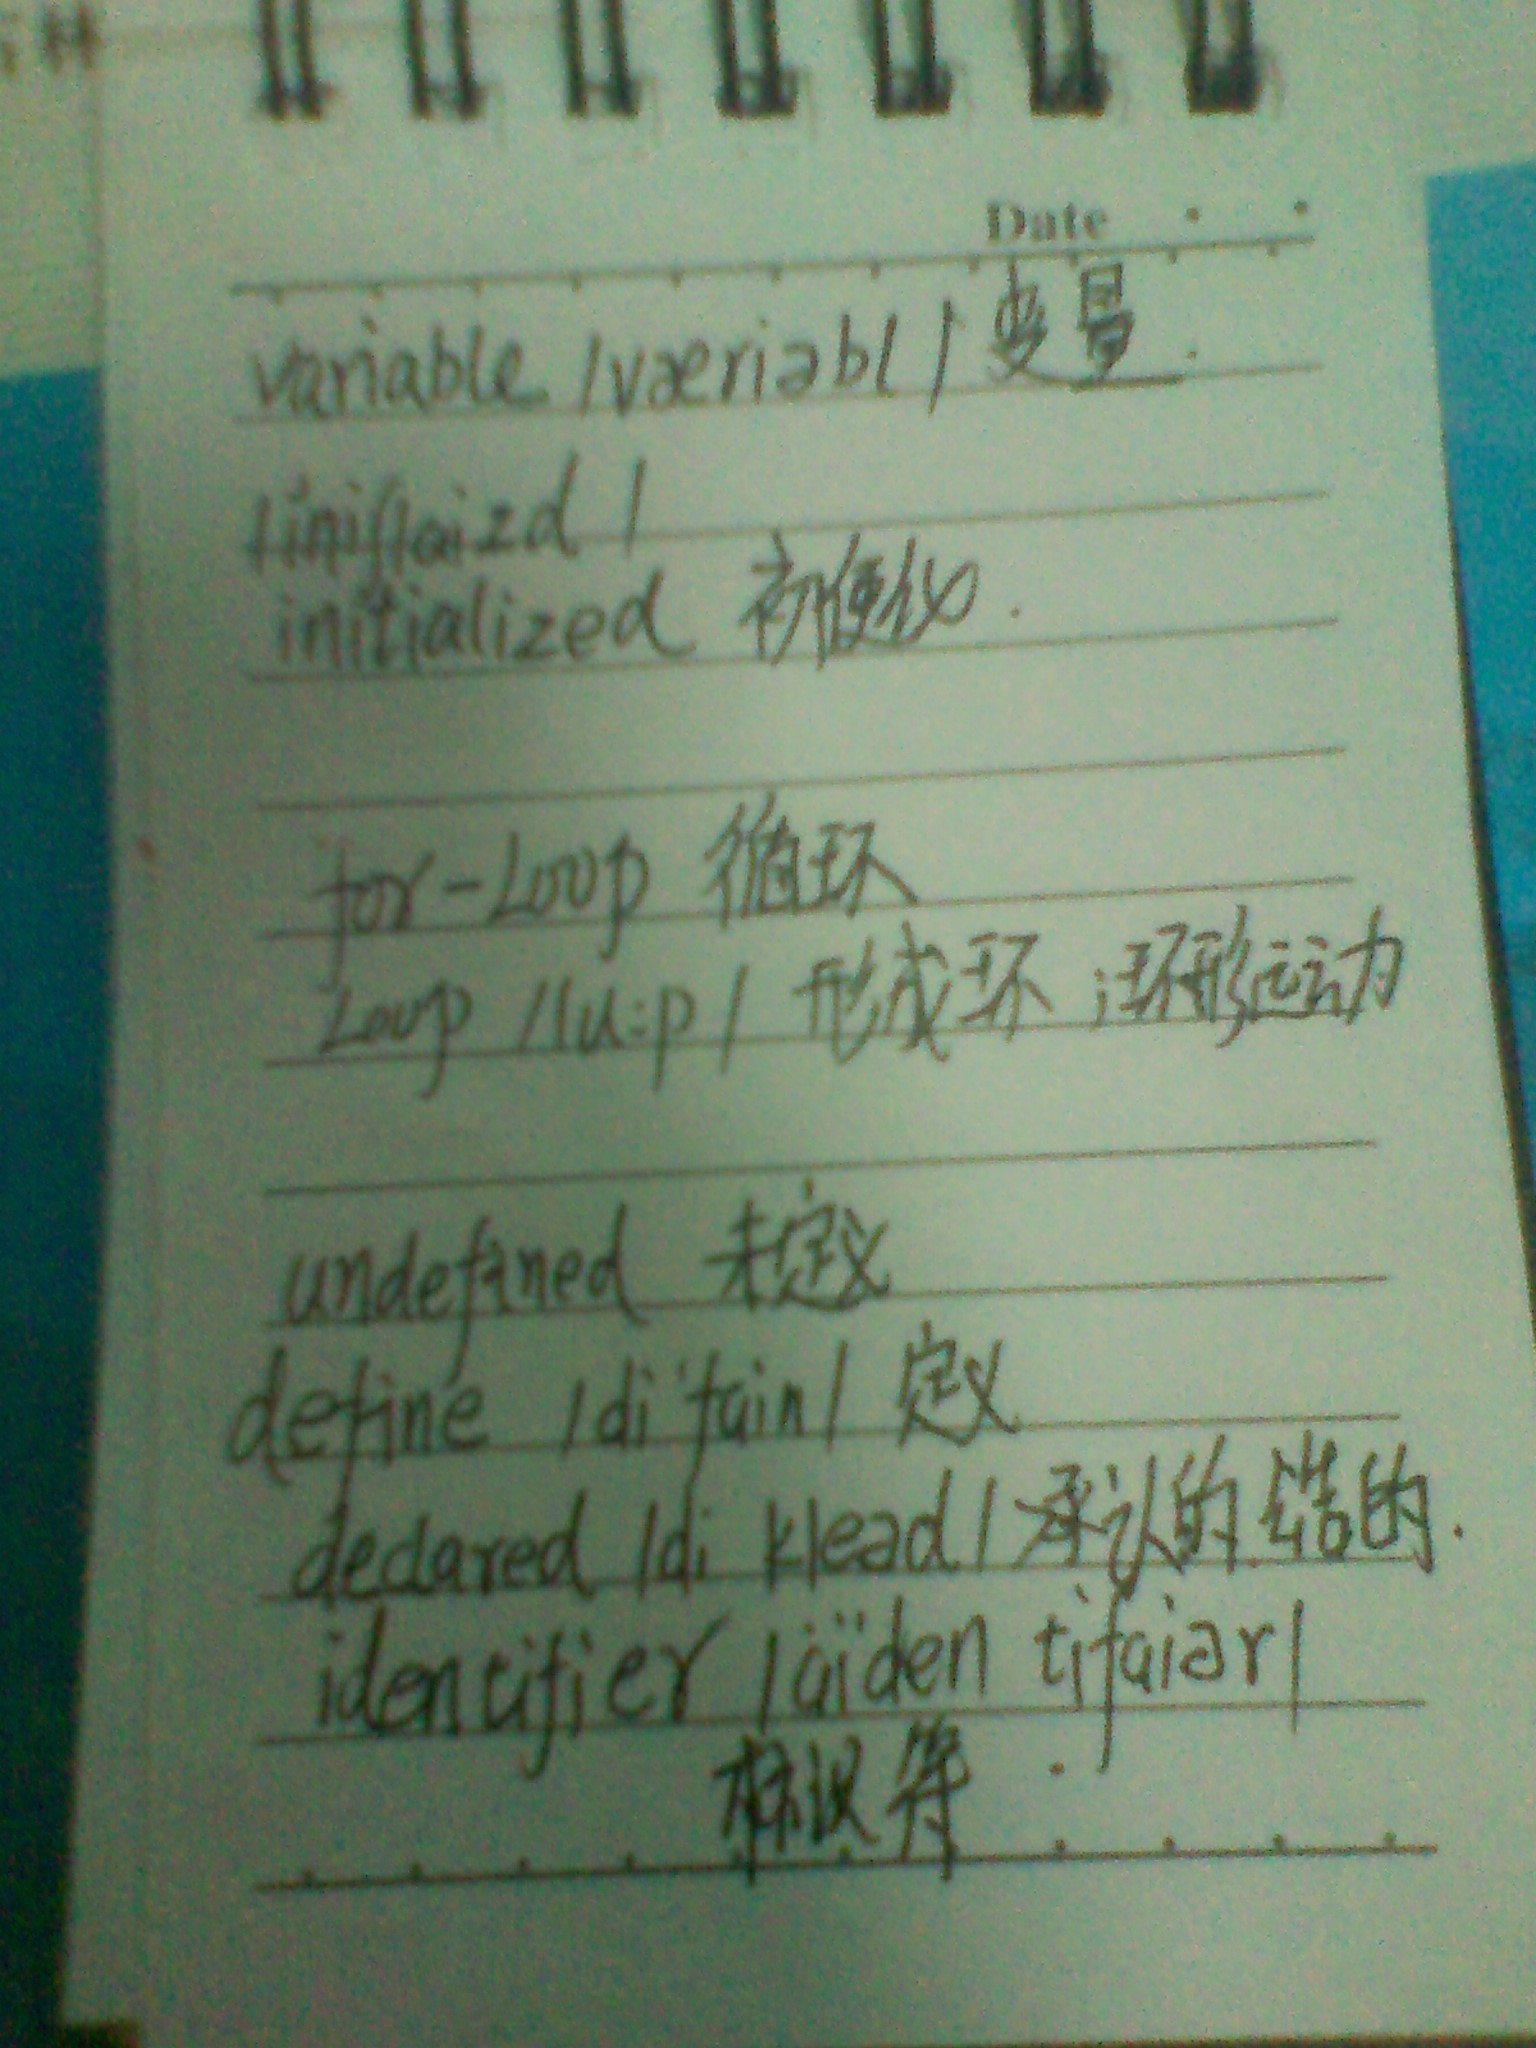 Date
variable /væriəbl/ 变量.
/iniʃlaizd/
initialized 初便化.
for-Loop 循环
Loop /lu:p/ 形成环 ;环形运动
undefined 未定义
define /di'fain/ 定义
declared /di klead/ 承认的 的.
identifier /ai'den tifaiər/
标识符.